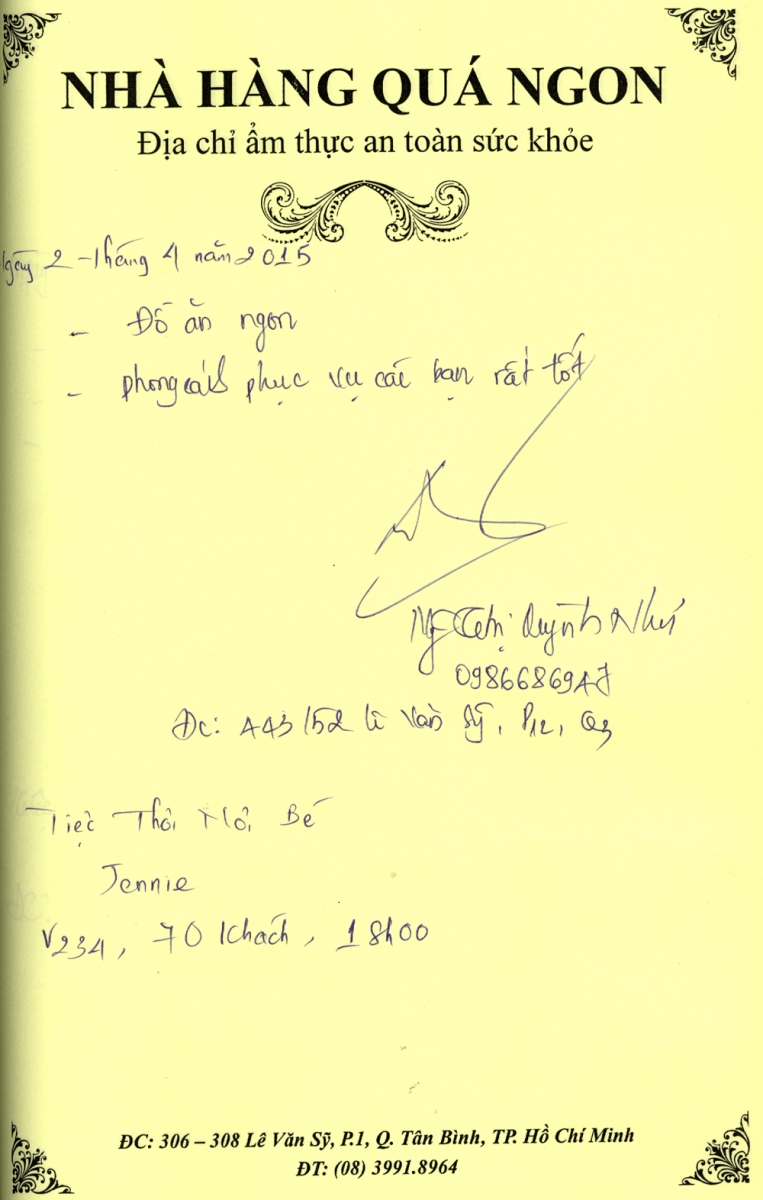 NHÀ HÀNG QUÁ NGON
Địa chỉ ẩm thực an toàn sức khỏe
Ngày 2 - tháng 4 năm 2015
- Đồ ăn ngon
- phong cách phục vụ các bạn rất tốt
Thị Quỳnh Như
ĐC: 443/52 Lê Văn Sỹ, P12, Q3
Tiệc Thôi Nôi Bé
Jennie
V234, 70 khách, 18h00
ĐC: 306 – 308 Lê Văn Sỹ, P.1, Q. Tân Bình, TP. Hồ Chí Minh
ĐT: (08) 3991.8964